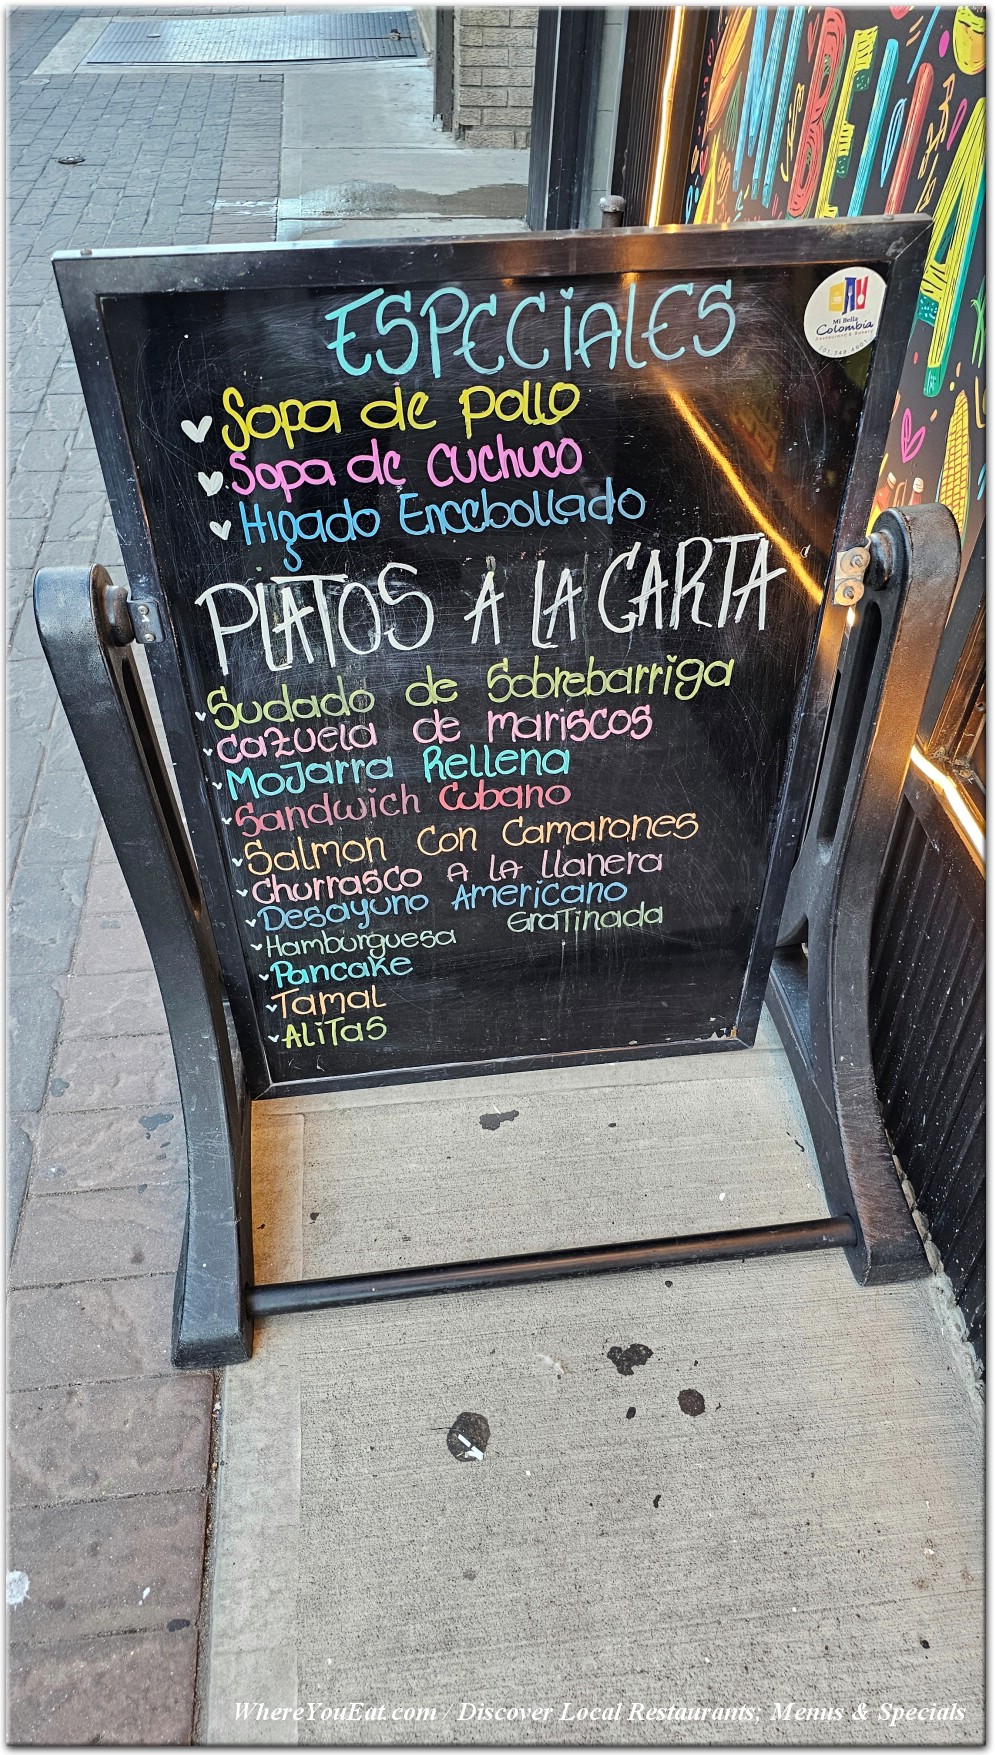 ESPECIALES
Mi Bella
Colombia
Sopa de pollo
Sopa de cuchuco
Higado Encebollado
PLATOS A LA CARTA
Sudado de Sobrebarriga
Cazuela de mariscos
Mojarra Rellena
Sandwich Cubano
Salmon Con Camarones
Churrasco A LA llanera
Desayuno Americano
Hamburguesa Gratinada
Pancake
Tamal
Alitas
WhereYouEat.com / Discover Local Restaurants; Menus & Specials